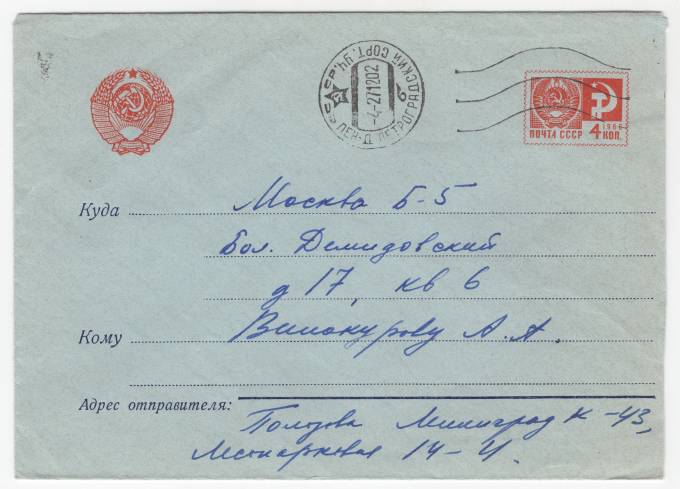 ПОЧТА СССР
4 КОП.
1966
ЛЕН-Д ПЕТРОГРАДСКИЙ СОРТ. УЧ.
-4-2711202
Куда Москва Б-5
Бол. Демидовский
д 17, кв 6
Кому Винокурову А. А.
Адрес отправителя:
Ленинград К-43,
14-4.